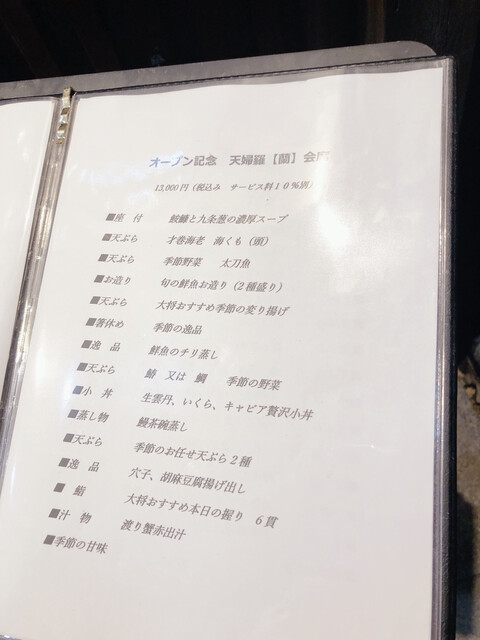 オープン記念 天婦羅【蘭】会席
13,000円(税込み サービス料10%別)
■座 付 鮟鱇と九条葱の濃厚スープ
■天ぷら 才巻海老 海くも(頭)
■天ぷら 季節野菜 太刀魚
■お造り 旬の鮮魚お造り(2種盛り)
■天ぷら 大将おすすめ季節の変り揚げ
■箸休め 季節の逸品
■逸 品 鮮魚のチリ蒸し
■天ぷら 鰆 又は 鯛 季節の野菜
■小 丼 生雲丹、いくら、キャビア贅沢小丼
■蒸し物 鰻茶碗蒸し
■天ぷら 季節のお任せ天ぷら2種
■逸 品 穴子、胡麻豆腐揚げ出し
■ 鮨 大将おすすめ本日の握り 6貫
■汁 物 渡り蟹赤出汁
■季節の甘味